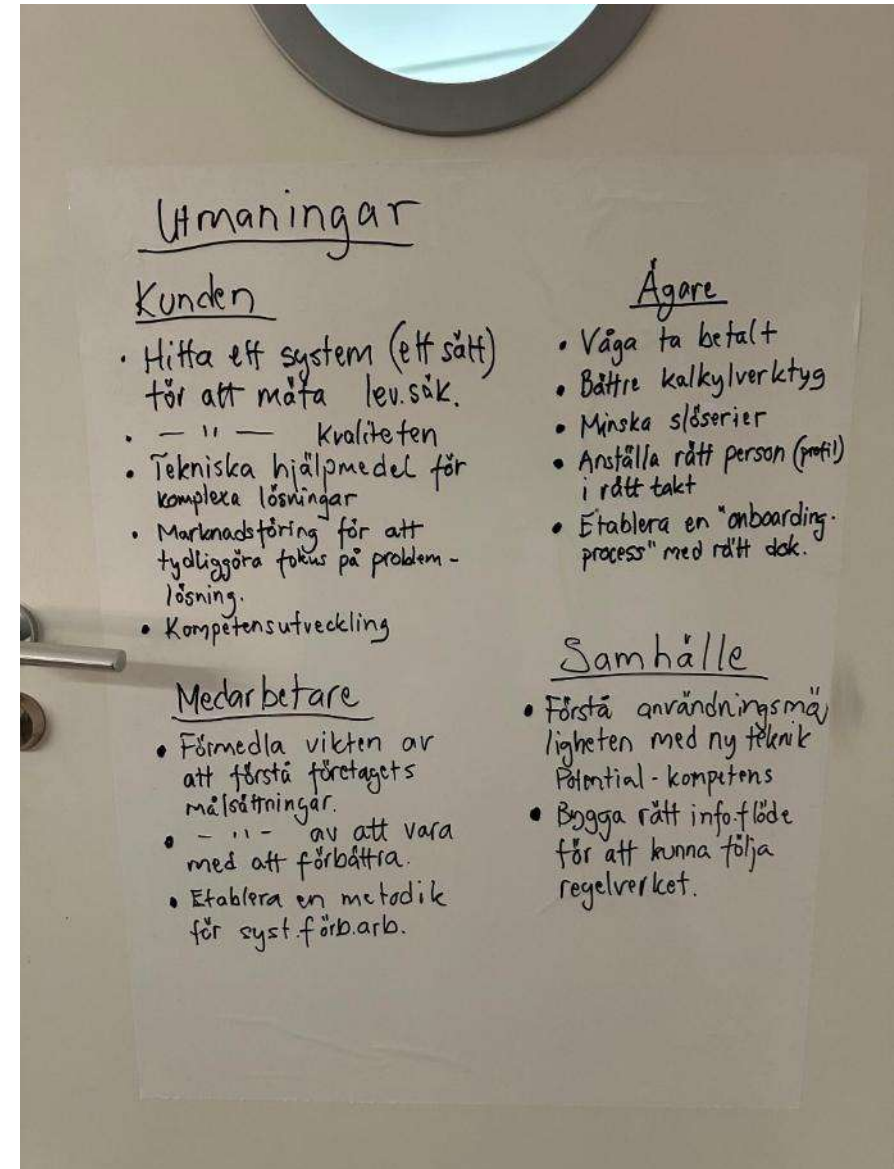 Utmaningar
Kunden
• Hitta ett system (ett sätt)
för att mäta lev.säk.
• — " — Kvaliteten
• Tekniska hjälpmedel för
komplexa lösningar
• Marknadsföring för att
tydliggöra fokus på problem-
lösning.
• Kompetensutveckling
Medarbetare
• Förmedla vikten av
att förstå företagets
målsättningar.
• — " — av att vara
med att förbättra.
• Etablera en metodik
för syst.förb.arb.
Ägare
• Våga ta betalt
• Bättre kalkylverktyg
• Minska slöserier
• Anställa rätt person (profil)
i rätt takt
• Etablera en "onboarding-
process" med rätt dok.
Samhälle
• Förstå användningsmö
ligheten med ny teknik
Potential - kompetens
• Bygga rätt info.flöde
för att kunna följa
regelverket.